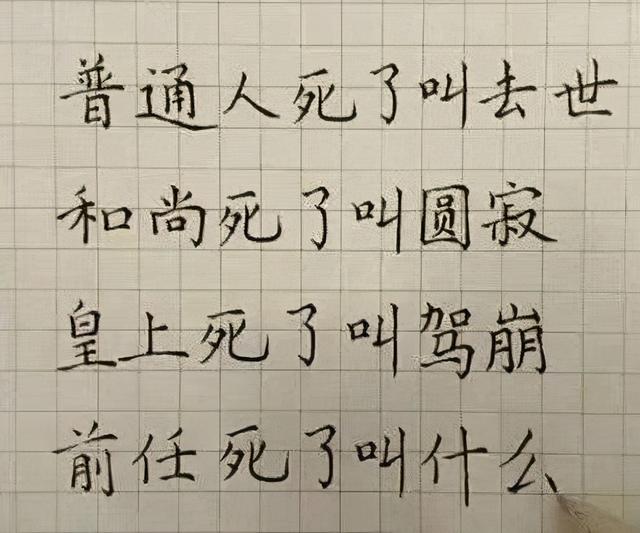 普通人死了叫去世
和尚死了叫圆寂
皇上死了叫驾崩
前任死了叫什么